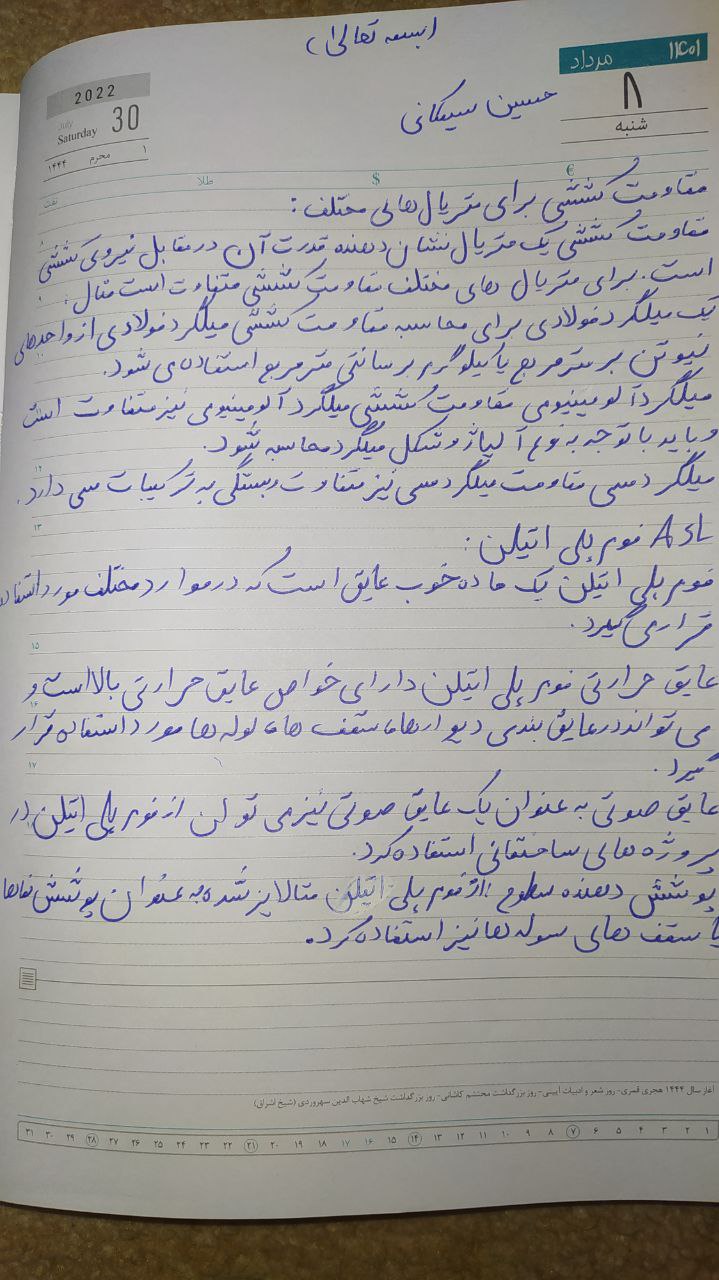 (بسمه تعالی)
۱۴۰۱ مرداد
۸
شنبه
2022
July
Saturday 30
۱ محرم ۱۴۴۴
حسین سیکانی
€ $ طلا نفت
مقاومت کششی برای متریال های مختلف :
مقاومت کششی یک متریال نشان دهنده قدرت آن در مقابل نیروی کششی
است. برای متریال های مختلف مقاومت کششی متفاوت است مثال :
یک میلگرد فولادی برای محاسبه مقاومت کششی میلگرد فولادی از واحدهای
نیوتن بر مترمربع یا کیلوگرم بر سانتی مترمربع استفاده می شود.
میلگرد آلومینیومی مقاومت کششی میلگرد آلومینیومی نیز متفاوت است
و باید با توجه به نوع آلیاژ و شکل میلگرد محاسبه شود.
میلگرد مسی مقاومت میلگرد مسی نیز متفاوت و بستگی به ترکیبات مسی دارد.
فوم پلی اتیلن :
فوم پلی اتیلن یک ماده خوب عایق است که در موارد مختلف مورد استفاده
قرار می گیرد.
عایق حرارتی فوم پلی اتیلن دارای خواص عایق حرارتی بالا است و
می تواند در عایق بندی دیوارها، سقف ها، لوله ها مورد استفاده قرار
گیرد.
عایق صوتی به عنوان یک عایق صوتی نیز می تولن از فوم پلی اتیلن در
پروژه های ساختمانی استفاده کرد.
پوشش دهنده سطوح : از فوم پلی اتیلن متالایز شده به عنوان پوشش نماها
یا سقف های سوله ها نیز استفاده کرد.
آغاز سال ۱۴۴۴ هجری قمری- روز شعر و ادبیات آیینی- روز بزرگداشت محتشم کاشانی- روز بزرگداشت شیخ شهاب الدین سهروردی (شیخ اشراق)
۱ ۲ ۳ ۴ ۵ ۶ ۷ ۸ ۹ ۱۰ ۱۱ ۱۲ ۱۳ ۱۴ ۱۵ ۱۶ ۱۷ ۱۸ ۱۹ ۲۰ ۲۱ ۲۲ ۲۳ ۲۴ ۲۵ ۲۶ ۲۷ ۲۸ ۲۹ ۳۰ ۳۱